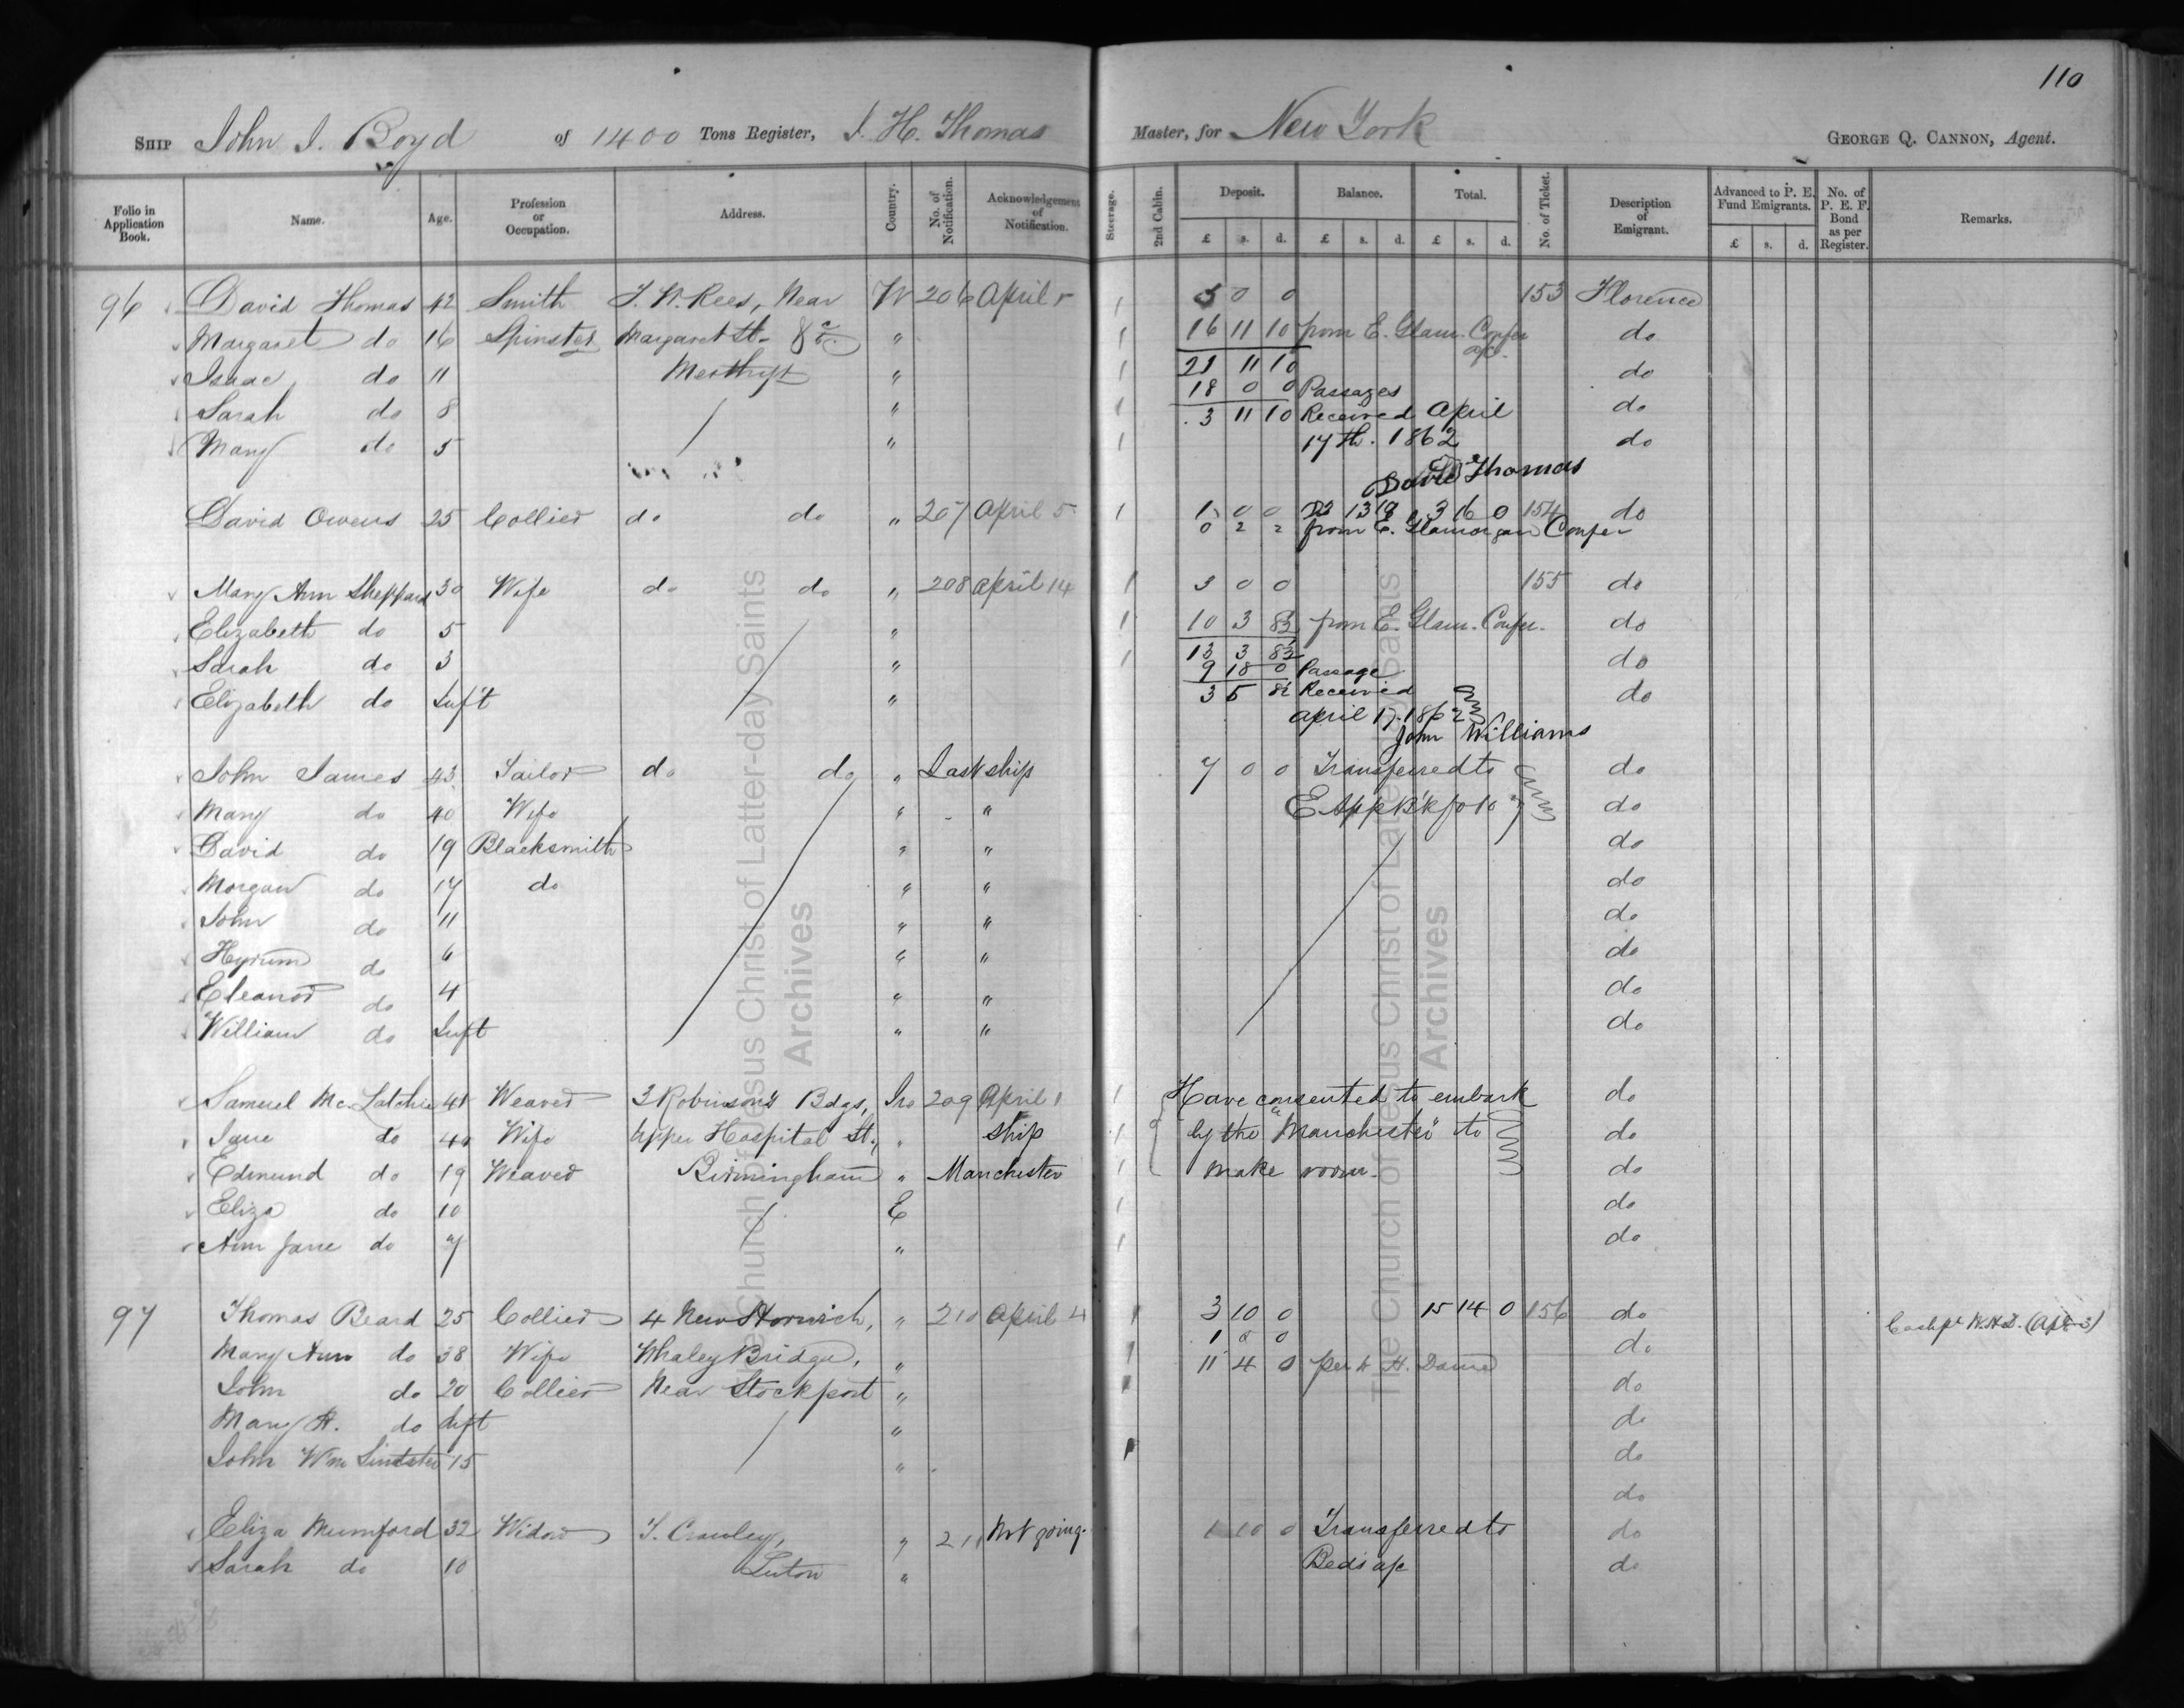 110
SHIP John J. Boyd of 1400 Tons Register, J. H. Thomas Master, for New York GEORGE Q. CANNON, Agent.
Folio in Application Book. Name. Age. Profession or Occupation. Address. Country. No. of Notification. Acknowledgement of Notification. Steerage. 2nd Cabin. Deposit. Balance. Total. No. of Ticket. Description of Emigrant. Advanced to P. E. Fund Emigrants. No. of P. E. F. Bond as per Register. Remarks.
£ s. d. £ s. d. £ s. d. £ s. d.
96 David Thomas 42 Smith T. W. Rees, Near W 206 April 5 1 5 0 0 153 Florence
Margaret do 16 Spinster Margaret St. &c. " 1 16 11 10 from E. Glam. Confer a/c. do
Isaac do 11 Merthyr " 1 21 11 10 do
18 0 0 Passages
Sarah do 8 " 1 3 11 10 Received April do
Mary do 5 " 1 17th. 1862 do
David Thomas
David Owens 25 Collier do do " 207 April 5 1 1 0 0 3 16 0 154 do
0 2 2 from E. Glamorgan Confer
Mary Ann Sheppard 30 Wife do do " 208 April 14 1 3 0 0 155 do
Elizabeth do 5 " 1 10 3 8½ from E. Glam. Confer. do
Sarah do 3 " 1 13 3 8½ do
9 18 0 Passage
Elizabeth do Inft " 3 5 8½ Received do
April 17. 1862
John Williams
John James 43 Tailor do do " Last ship 7 0 0 Transferred to do
Mary do 40 Wife " " E App B'k fo 10 do
David do 19 Blacksmith " " do
Morgan do 17 do " " do
John do 11 " " do
Hyrum do 6 " " do
Eleanor do 4 " " do
William do Inft " " do
Samuel Mc.Latchie 41 Weaver 3 Robinson's Bdgs, Ire 209 April 1 1 Have consented to embark do
Jane do 40 Wife Upper Hospital St., " ship 1 by the "Manchester" to do
Edmund do 19 Weaver Birmingham " Manchester 1 make room. do
Eliza do 10 E 1 do
Ann Jane do 7 " 1 do
97 Thomas Beard 25 Collier 4 New Horwich, " 210 April 4 1 3 10 0 15 14 0 156 do Cash pr W.H.D. (Apl 3)
Mary Ann do 38 Wife Whaley Bridge, " 1 1 0 0 do
11 4 0 per W. H.
John do 20 Collier Near Stockport " 1 do
Mary H. do Inft " do
John Wm 15 " 1 do
do
Eliza Mumford 32 Widow T. Crawley, " 211 Not going. 1 10 0 Transferred to do
Sarah do 10 Luton " Beds a/c do
The Church of Jesus Christ of Latter-day Saints
Archives
The Church of Jesus Christ of Latter-day Saints
Archives